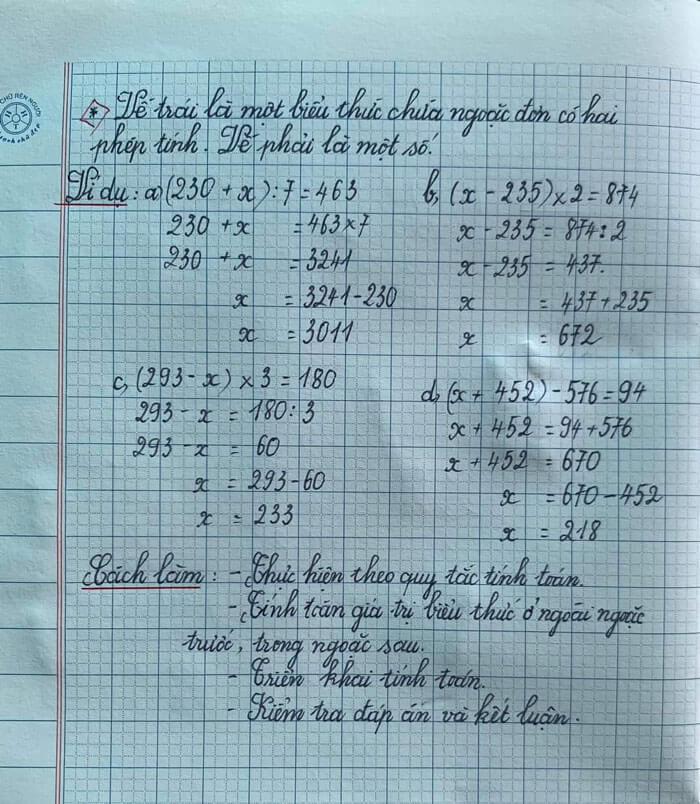 * Vế trái là một biểu thức chứa ngoặc đơn có hai
phép tính. Vế phải là một số.
Ví dụ: a) (230 + x) : 7 = 463
230 + x = 463 x 7
230 + x = 3241
x = 3241 - 230
x = 3011
b, (x - 235) x 2 = 874
x - 235 = 874 : 2
x - 235 = 437.
x = 437 + 235
x = 672
c, (293 - x) x 3 = 180
293 - x = 180 : 3
293 - x = 60
x = 293 - 60
x = 233
d, (x + 452) - 576 = 94
x + 452 = 94 + 576
x + 452 = 670
x = 670 - 452
x = 218
Cách làm: - Thực hiện theo quy tắc tính toán.
- Tính toán giá trị biểu thức ở ngoài ngoặc
trước, trong ngoặc sau.
- Triển khai tính toán.
- Kiểm tra đáp án và kết luận.